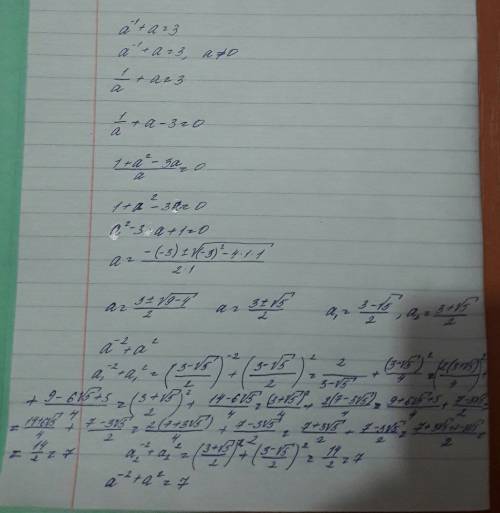 a⁻¹+a=3
a⁻¹+a=3, a≠0
1/a +a=3
1/a +a-3=0
(1+a²-3a)/a=0
1+a²-3a=0
a²-3·a+1=0
a=(-(-3)±√((-3)²-4·1·1))/(2·1)
a=(3±√(9-4))/2 a=(3±√5)/2 a₁=(3-√5)/2, a₂=(3+√5)/2
a⁻²+a²
a₁⁻²+a₁²=((3-√5)/2)⁻²+((3-√5)/2)²=2/(3-√5) +(3-√5)²/4=
+(9-6√5+5)/4=((3+√5)/2)²+(14-6√5)/4=(3+√5)²/4+2(7-3√5)/4=(9+6√5+5)/4+(7-3√5)/2=
=(14+6√5)/4+(7-3√5)/2=2(7+3√5)/4+(7-3√5)/2=(7+3√5)/2+(7-3√5)/2=(7+3√5+7-3√5)/2=
=14/2=7 a₂⁻²+a₂²=((3+√5)/2)⁻²+((3-√5)/2)²=14/2=7
a⁻²+a²=7